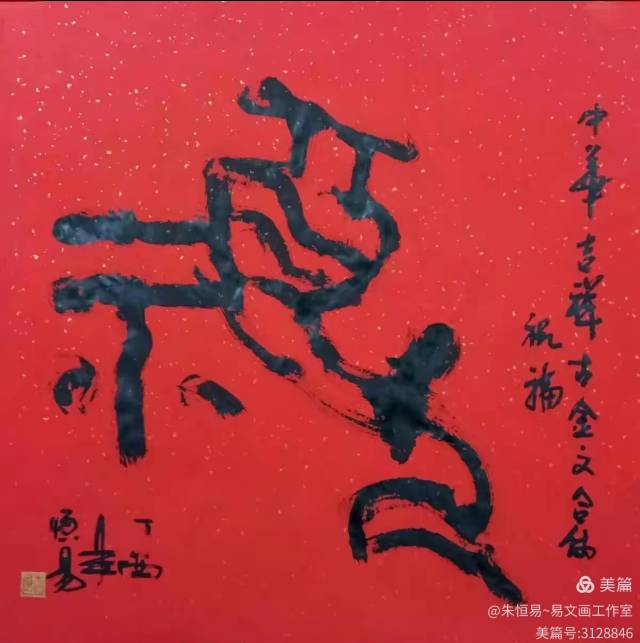 中華吉祥古金文合体
祝福
丁酉
恒易書
美篇
@朱恒易~易文画工作室
美篇号:3128846